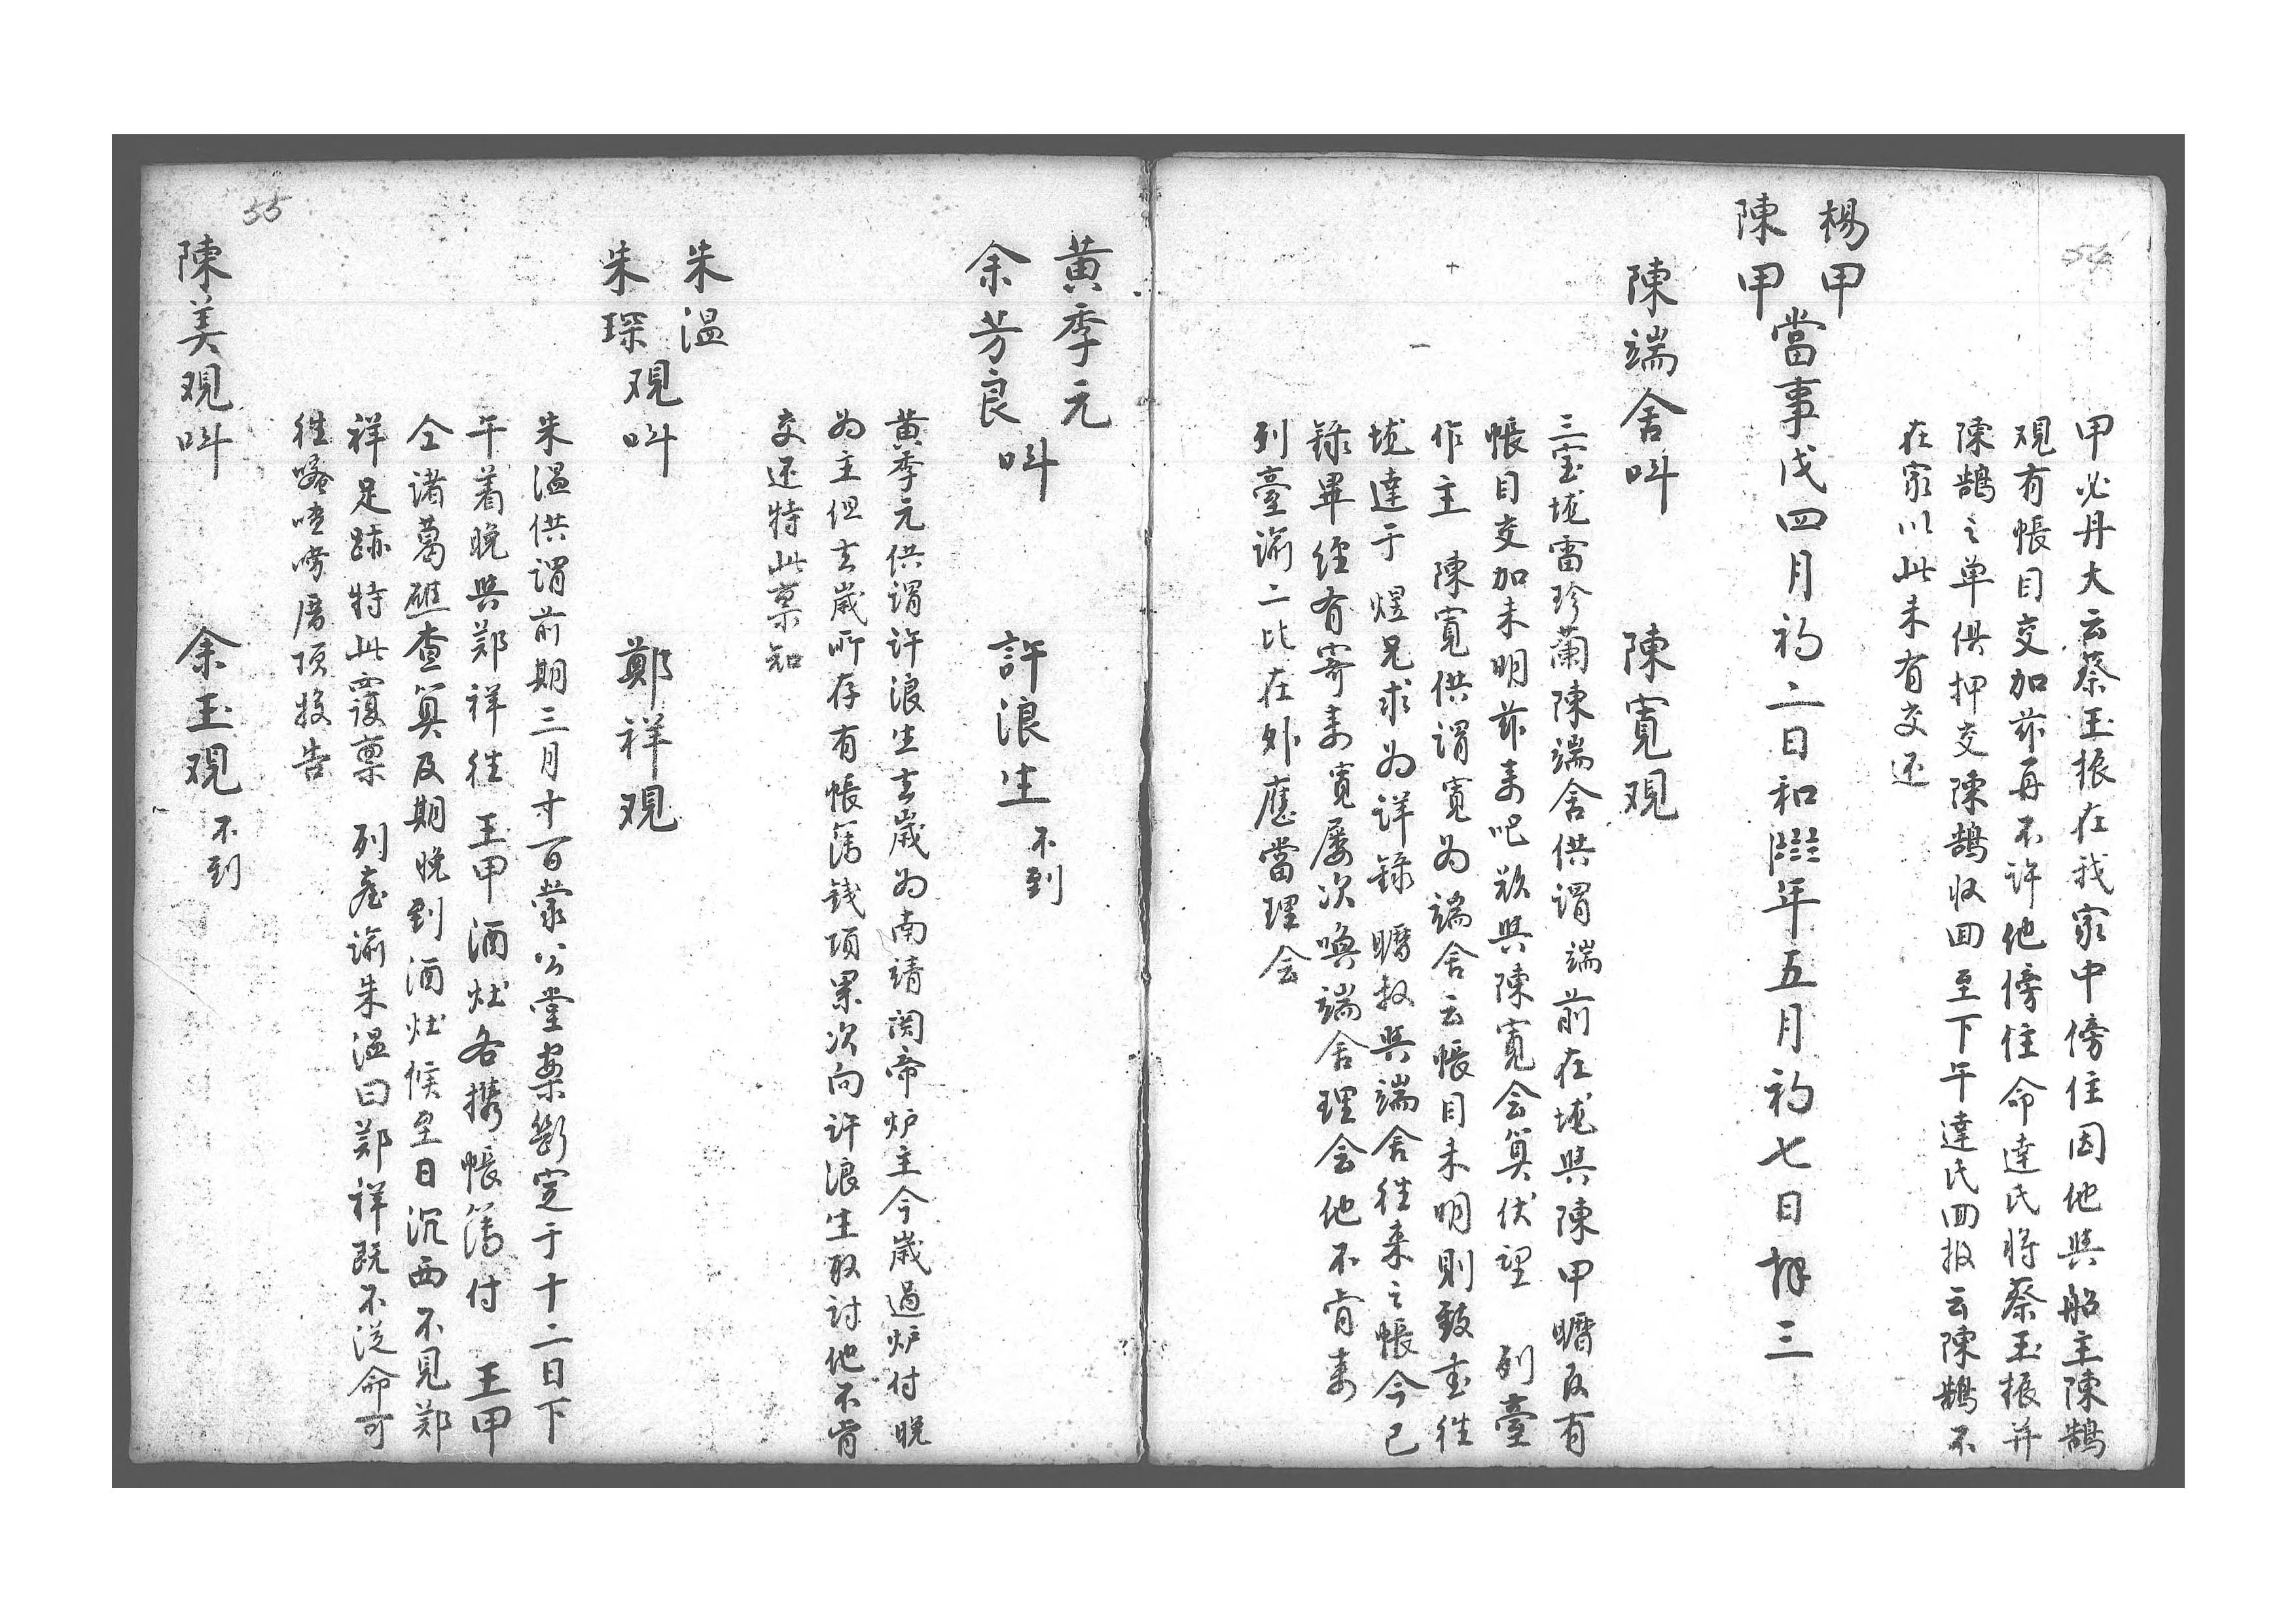 54
甲必丹大云蔡玉振在我家中傍住因他與船主陳鵲
观有帳目交加茲再不許他傍住命達氏將蔡玉振并
陳鵲之单俱押交陳鵲收囬至下午達氏囬报云陳鵲不
在家以此未有交还
楊甲
陳甲
當事戊四月初二日和年五月初七日拜三
陳端舍呌 陳寬观
三宝垅雷珍蘭陳端舍供謂端前在垅與陳甲瞃及有
帳目交加未明茲来吧欲與陳寬会算伏望 列臺
作主 陳寬供謂寬为端舍云帳目未明則致書往
垅達于煜兄求为详錄瞃叔與端舍往来之帳今已
錄畢經有寄来寬屡次喚端舍理会他不肯来
列臺諭二比在外應當理会
黄季元
余芳良
呌 許浪生 不到
黄季元供謂许浪生去歲为南靖関帝炉主今歲過炉付晚
为主但去歲所存有帳簿錢項累次向许浪生取討他不肯
交还特此禀知
朱温
朱琛
观呌 鄭祥观
朱温供謂前期三月廿一日蒙公堂案断定于十二日下
午着晚與郑祥往 王甲酒灶各携帳簿付 王甲
仝諸葛礁查算及期晚到酒灶候至日沉西不見郑
祥足跡特此覆禀 列臺諭朱温曰郑祥既不從命可
往嗼喳嘮厝项投告
55
陳美观呌 余玉观 不到